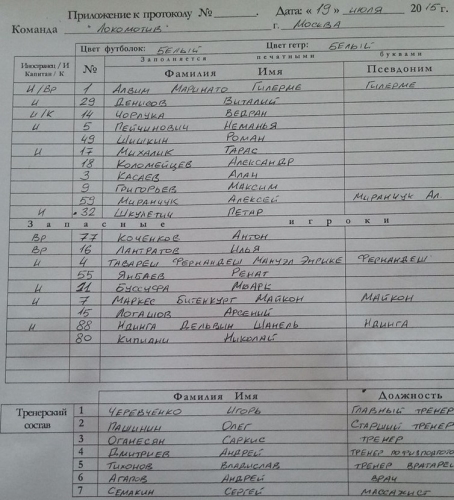 Приложение к протоколу № ______. Дата: « 19 » июля 2015 г.
Команда "Локомотив" г. Москва
Цвет футболок: Белый Цвет гетр: Белый
Иностранец / И Капитан / К № Заполняется печатными буквами
Фамилия Имя Псевдоним
И/Вр 1 Алвим Маринато Гилерме Гилерме
И 29 Денисов Виталий
И/К 14 Чорлука Ведран
И 5 Пейчинович Неманья
49 Шишкин Роман
И 17 Михалик Тарас
18 Коломейцев Александр
3 Касаев Алан
9 Григорьев Максим
59 Миранчук Алексей Миранчук Ал.
И 32 Шкулетич Петар
Запасные игроки
Вр 77 Коченков Антон
Вр 16 Лантратов Илья
И 4 Тавареш Фернандеш Мануэл Энрике Фернандеш
55 Янбаев Ренат
И 21 Буссуфа Мбарк
И 7 Маркес Битенкурт Майкон Майкон
15 Логашов Арсений
И 88 Ндинга Дельвин Шанель Ндинга
80 Кипиани Николай
Фамилия Имя Должность
Тренерский состав
1 Черевченко Игорь Главный тренер
2 Пашинин Олег Старший тренер
3 Оганесян Саркис тренер
4 Дмитриев Андрей тренер
5 Тихонов Владислав тренер вратарей
6 Агапов Андрей врач
7 Семакин Сергей массажист